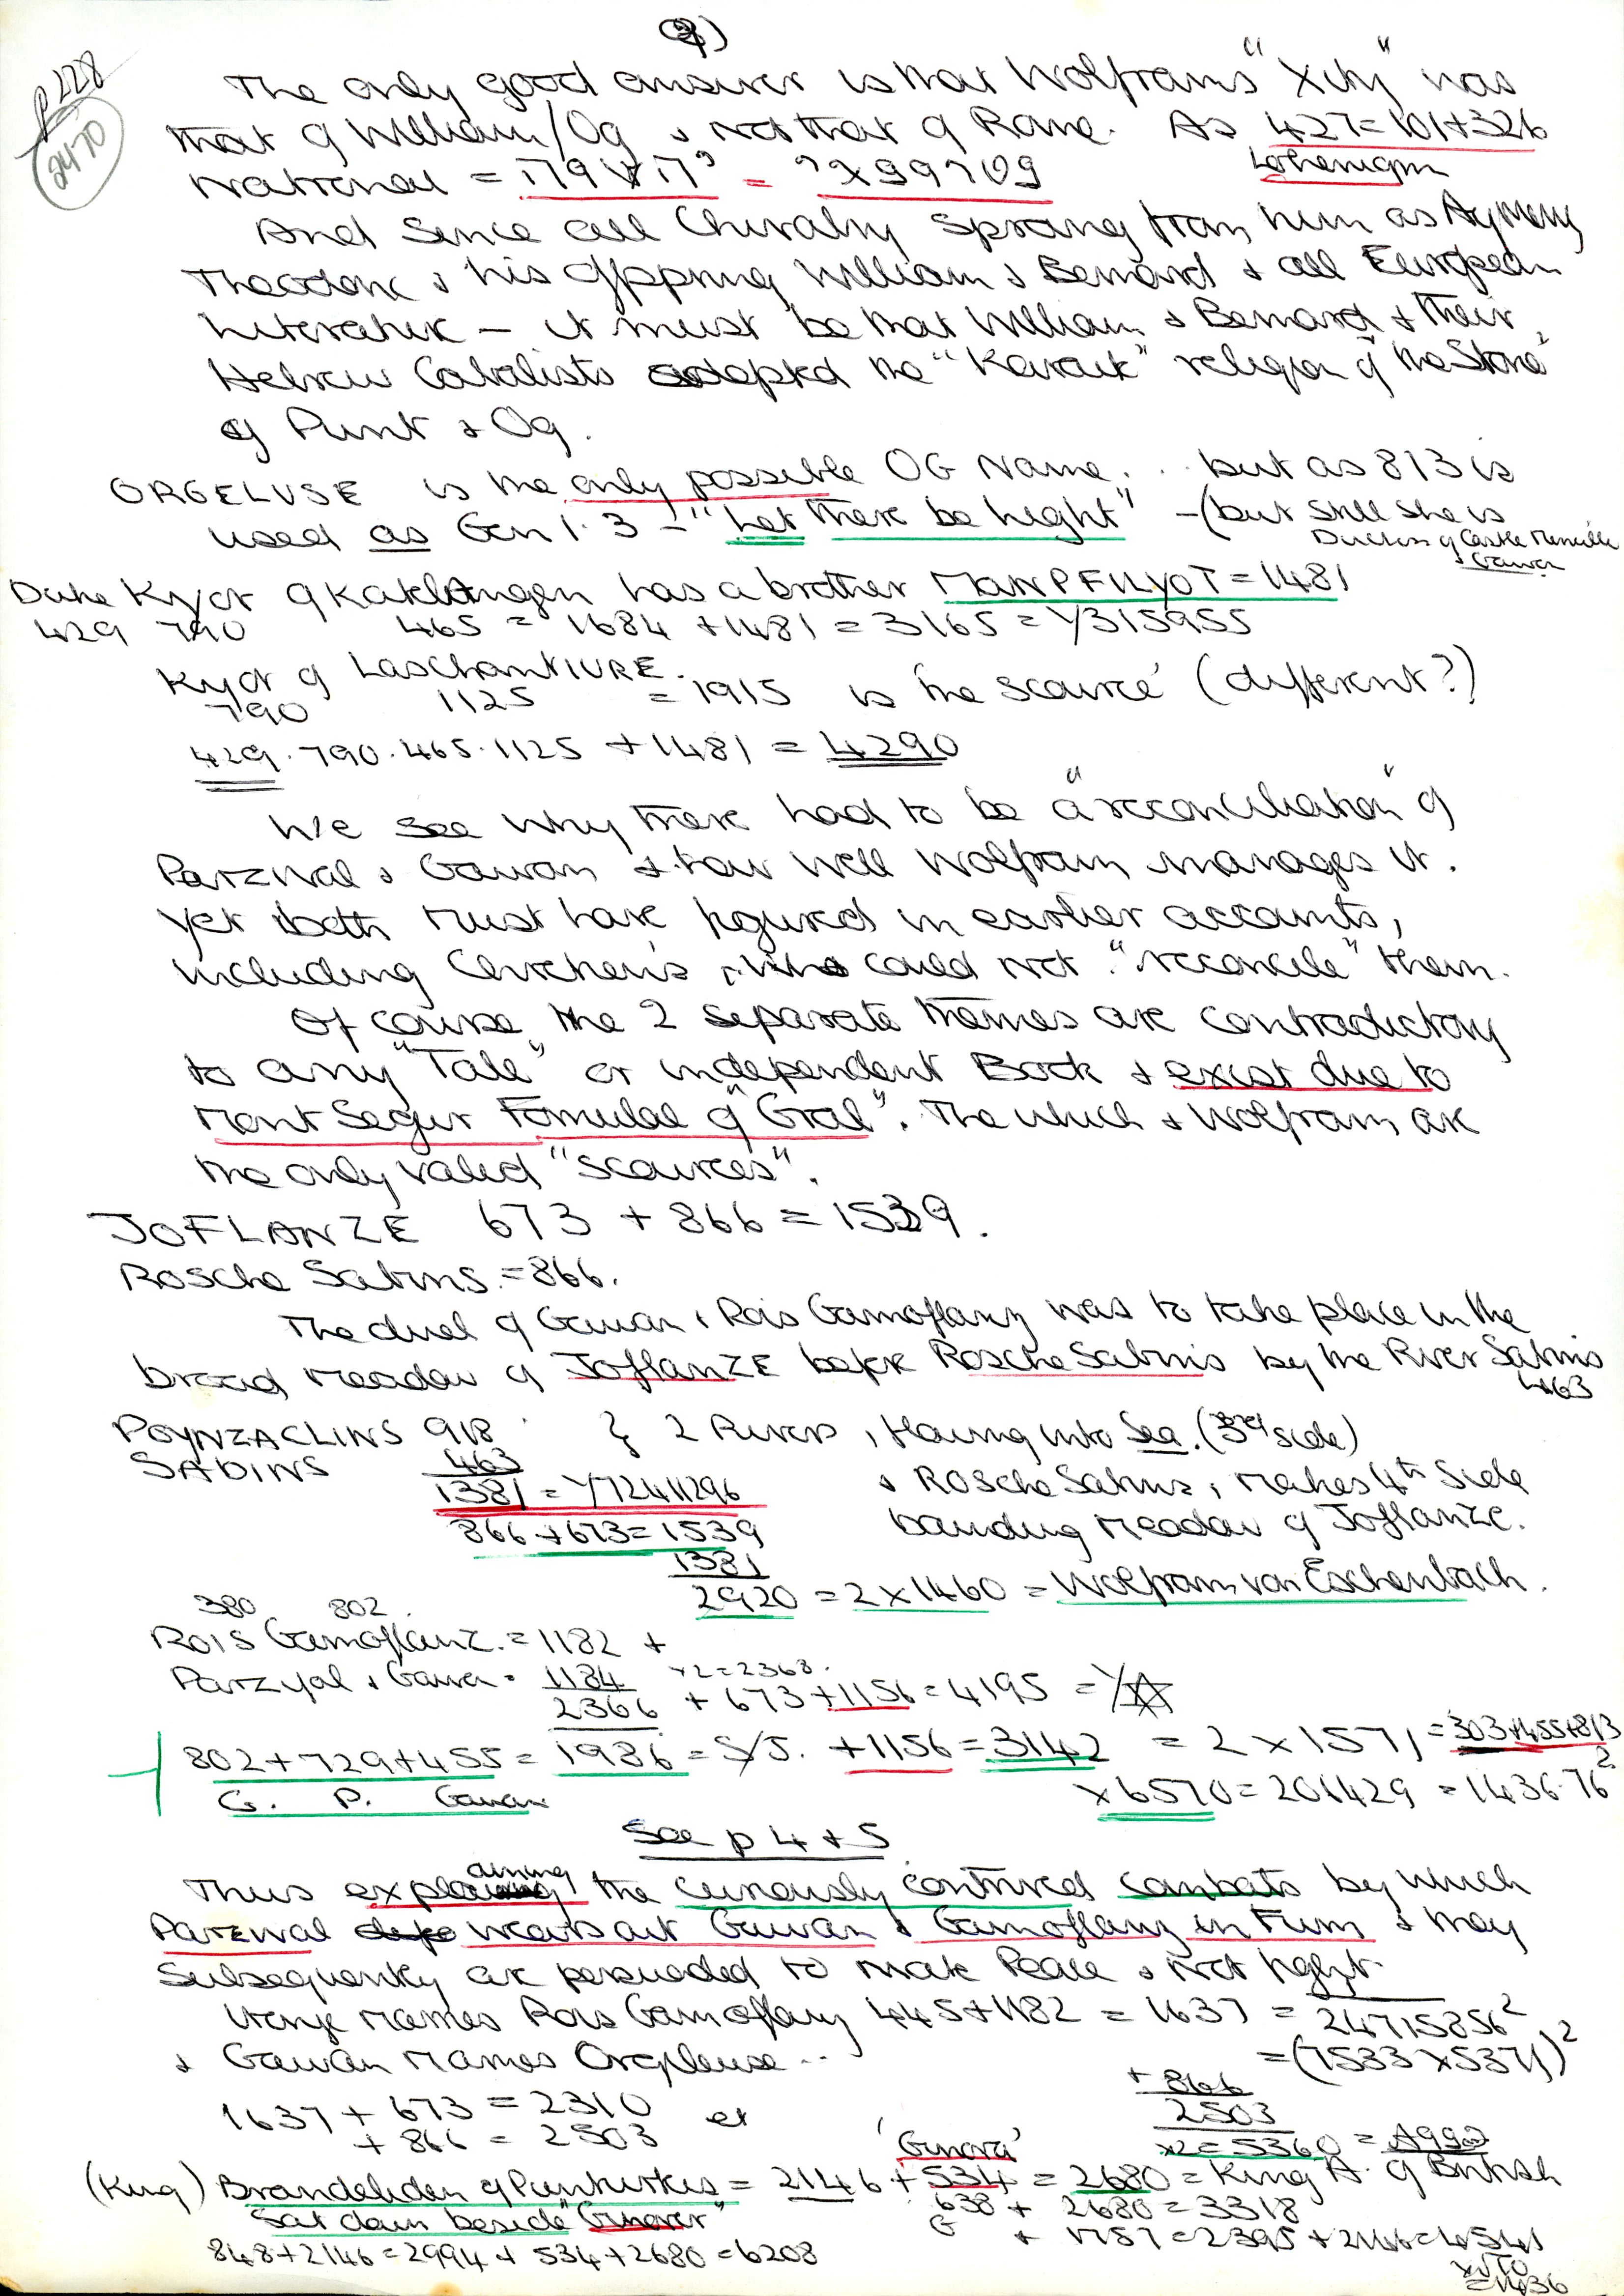 p228
2470
The only good answer is that Wolframs "Xity" was
that of William/Og & not that of Rome. As 427=101+326
Lohenigrn
National =
And since all Chivalry sprang from him as Aymery
Theoderic & his offspring William & Bernard & all European
Literature — it must be that William & Bernard & their
Hebrew Cabalists adopted the "Karaite" religion of 'the Stone'
of Punt & Og.
ORGELUSE is the only possible OG Name. . . but as 813 is
used as Gen 1.3 — "Let there be Light" — (but still she is
Duchess of Castle Merveille
& Gawan
Duke Kyot of Katelangen has a brother MANPFILYOT = 1481
429 790 465 = 1684 + 1481 = 3165 = √315955
Kyot of LaschantIURE.
790 1125 = 1915 is 'the source' (different?)
429.790.465.1125 + 1481 = 4290
We see why there had to be a "reconciliation" of
Parzival & Gawan & how well Wolfram manages it.
Yet both must have figured in earlier accounts,
including Chretien's, who could not "reconcile" them.
Of course the 2 separate themes are contradictory
to any "Tale" or independent Book & exist due to
Mont Segur Formulae of "Gral". The which & Wolfram are
the only valid "sources".
JOFLANZE 673 + 866 = 1539.
Rosche Sabins = 866.
The duel of Gawan & Rois Gamoflanz was to take place in the
broad meadow of JoflanZE before Rosche Sabins by the River Sabins
463
POYNZACLINS 918 } 2 Rivers, flowing into Sea. (3rd side)
SABINS 463
1381 = √72411296 & Rosche Sabins, makes 4th side
866+673=1539 bounding meadow of Joflanze.
1381
2920 = 2x1460 = Wolfram von Eschenbach.
380 802
Rois Gamoflanz. = 1182 +
Parzival & Gawan = 1184 x2=2368.
2366 + 673 + 1156 = 4195 =
802+729+455 = 1986 = S/J. + 1156 = 3142 = 2 x 1571 = 303+455+813
G. P. Gawan x 6570 = 201429 = 1436.76²
See p 4 & 5
Thus explaining the curiously contrived combats by which
Parzival wears out Gawan & Gamoflanz in turn & they
subsequently are persuaded to make Peace & not fight.
Itonje names Rois Gamoflanz 445+1182 = 1637 = 24715856²
& Gawan names Orgeleuse.. = (7533 x 5371)²
1637 + 673 = 2310 et + 866
+ 866 = 2503 2503
x2 = 5360 =
(King) Brandeliden of Punturtois = 2146 + 534 = 2680 = King A. of British
'Ginover'
Sat down beside "Ginover" 638 + 2680 = 3318
G + 1757 = 2395 + 2146 = 4541
848+2146=2994 + 534+2680=6208